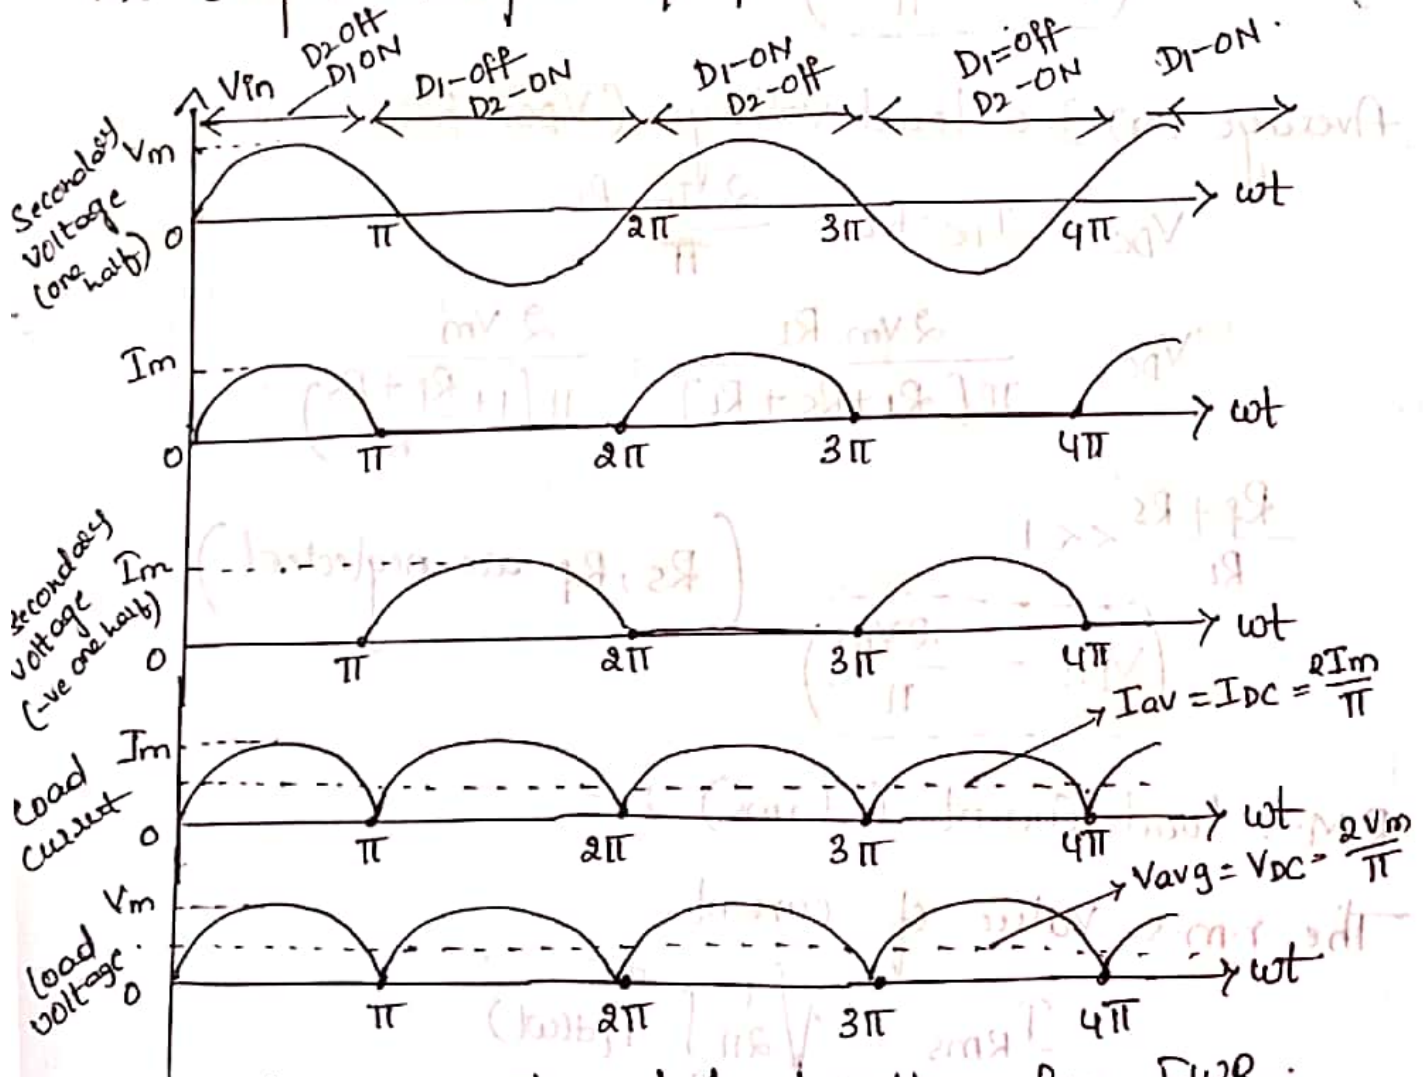 D2 Off
D1 ON
D1-Off
D2-ON
D1-ON
D2-Off
D1=Off
D2-ON
D1-ON.
Vin
Secondary voltage (one half)
Vm
0
π
2π
3π
4π
ωt
Im
0
π
2π
3π
4π
ωt
secondary voltage (-ve one half)
Im
0
π
2π
3π
4π
ωt
Iav = IDC = 2Im/π
Load current
Im
0
π
2π
3π
4π
ωt
Vavg = VDC = 2Vm/π
load voltage
Vm
0
π
2π
3π
4π
ωt